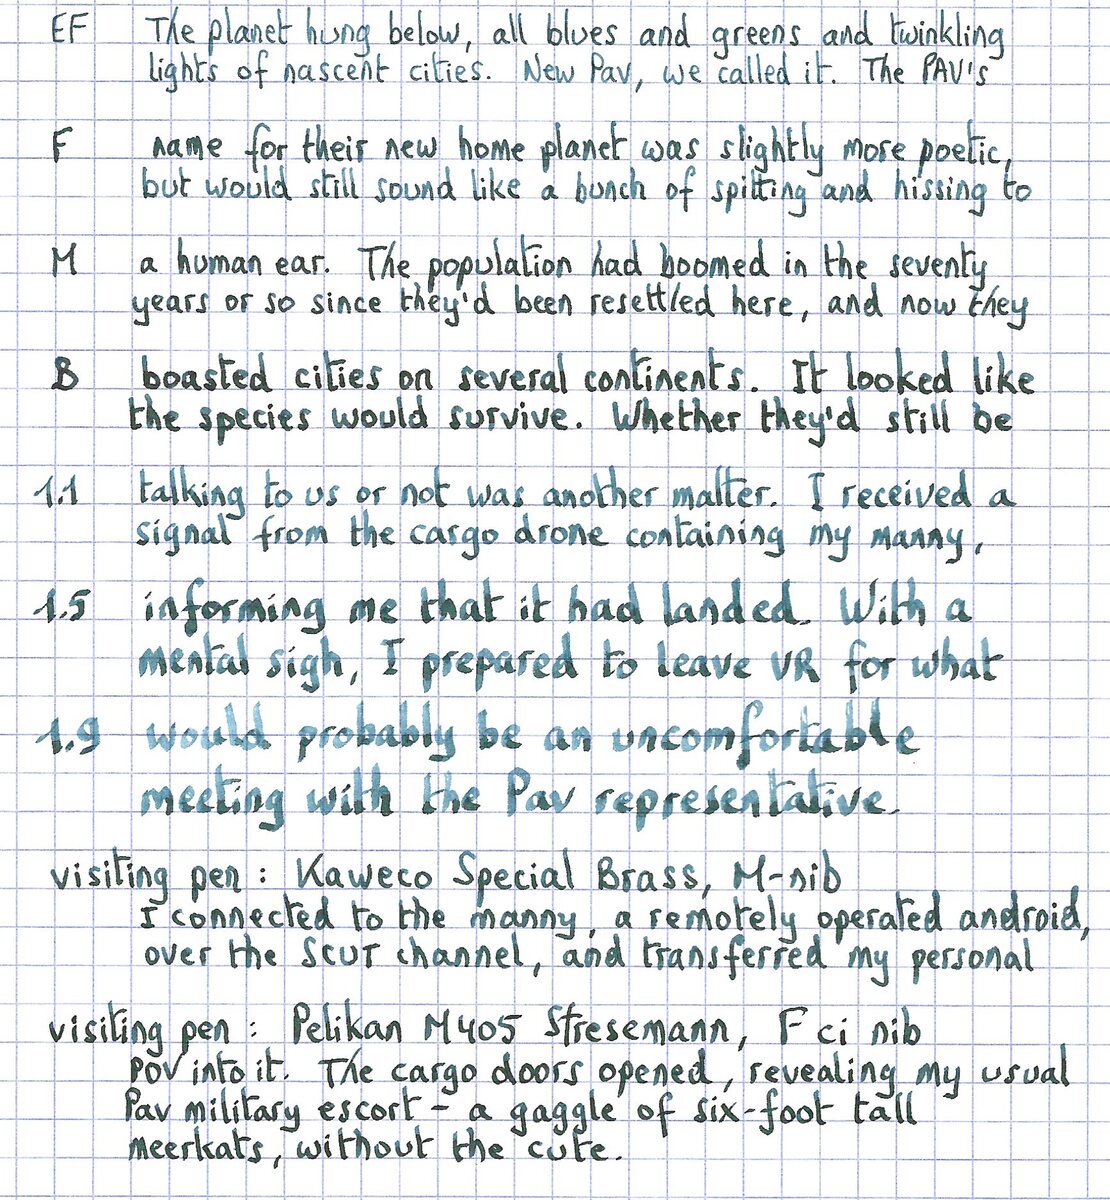 EF The planet hung below, all blues and greens and twinkling
lights of nascent cities. New Pav, we called it. The PAV's
F name for their new home planet was slightly more poetic,
but would still sound like a bunch of spitting and hissing to
M a human ear. The population had boomed in the seventy
years or so since they'd been resettled here, and now they
B boasted cities on several continents. It looked like
the species would survive. Whether they'd still be
1.1 talking to us or not was another matter. I received a
signal from the cargo drone containing my manny,
1.5 informing me that it had landed. With a
mental sigh, I prepared to leave VR for what
1.9 would probably be an uncomfortable
meeting with the Pav representative.
visiting pen : Kaweco Special Brass, M-nib
I connected to the manny, a remotely operated android,
over the SCUT channel, and transferred my personal
visiting pen : Pelikan M405 Stresemann, F ci nib
POV into it. The cargo doors opened, revealing my usual
Pav military escort - a gaggle of six-foot tall
meerkats, without the cute.